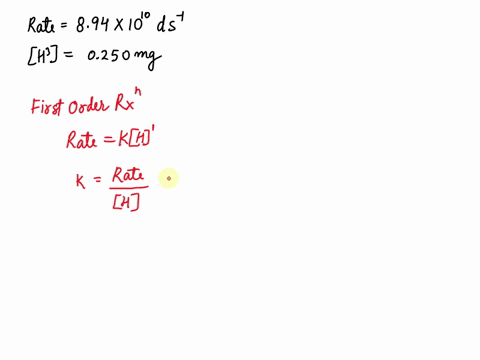 Rate = 8.94 X 10¹⁰ ds⁻¹
[H³] = 0.250 mg
First Order Rxⁿ
Rate = K[H]¹
K = Rate / [H]